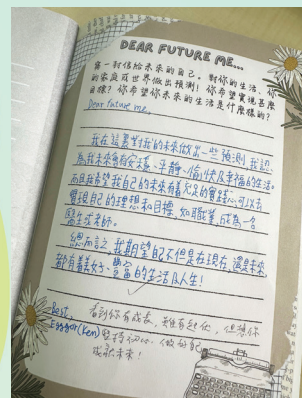 DEAR FUTURE ME...
寫一封信給未來的自己。對你的生活、你
的家庭或世界做出預測！你希望實現甚麼
目標？你希望你未來的生活是什麼樣的？
Dear future me,
我在這裏對我的未來做出一些預測，我認
為我未來會有安逸、平靜、愉快及幸福的生活。
而且我希望我自己的未來有着充足的實踐心可以有
實現自己的理想和目標，如職業，成為一名
醫生或老師。
總而言之，我期望自己不但是在現在，還是未來，
都有着美好、豐富的生活及人生！
Best,
(Ken)
看到你有成長，雖有起伏，但想你
堅持初心，做好自己
成就未來！